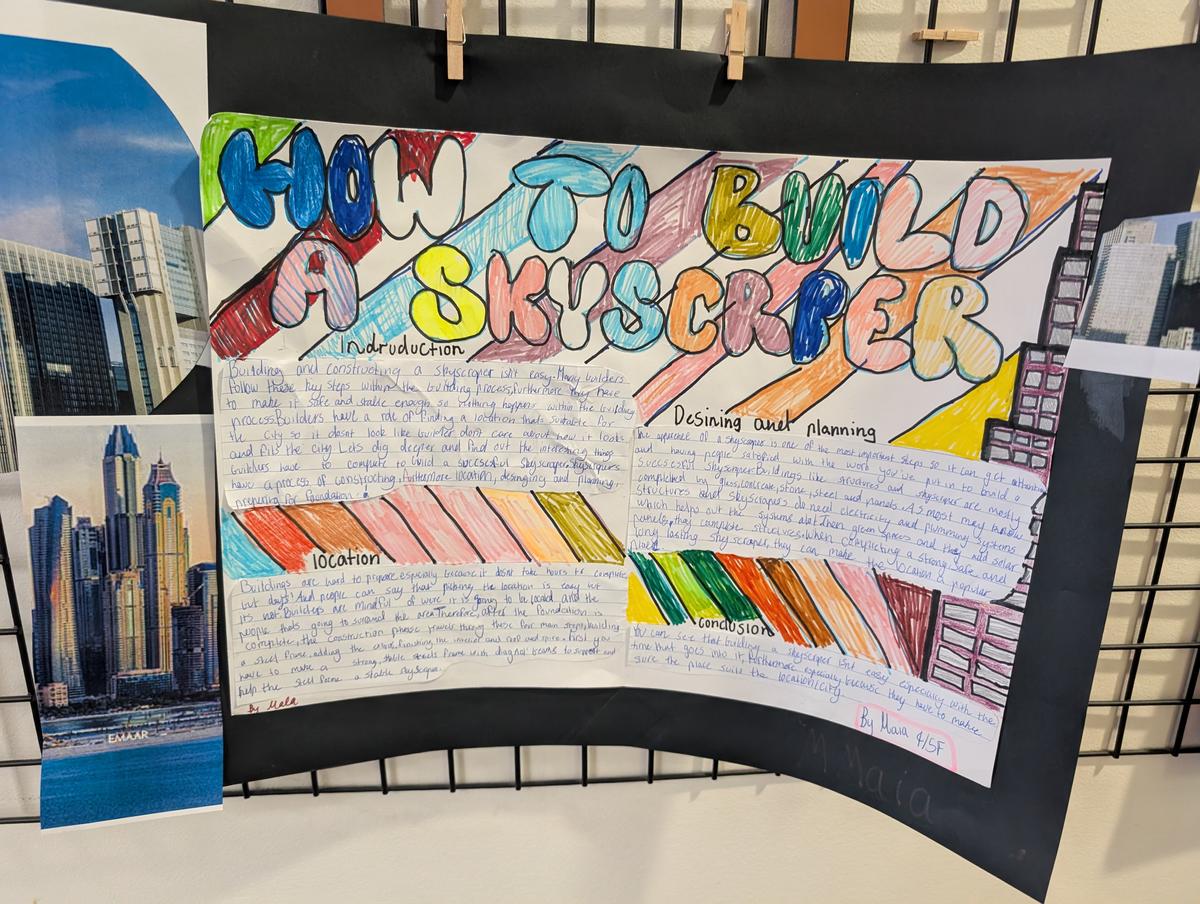 HOW TO BUILD
A SKYSCRPER
Indruduction
Building and constructing a skyscraper isn't easy. Many builders
follow these key steps within the building process, furthermore they have
to make it safe and stable enough so nothing happens within the building
process. Builders have a role of finding a location thats suitable for
the city so it dosnt look like builder dont care about how it looks
and fits the city. Lets dig deeper and find out the interesting things
builders have to compute to build a succesful skyscraper. Skyscrapers
have a process of constructing, furthermore location, desinging and planning,
preparing for foundation.
location
Buildings are hard to prepare especially because it dosnt take hours to complete
but days! And people can say that picking the location is easy but
it's not. Builders are mindful of were it is going to be located and the
people thats going to surround the area. Therefore, after the foundation is
complete, the construction phase travels through these four main steps, building
a steel frame, adding the finishing the interior and roof and spire. First you
have to make a strong, stable steel frame with diagnol beams to support and
help the steel frame a stable skyscraper.
By Maia
Desining and planning
the apperence of a skyscraper is one of the most important steps so it can get
and having people satisfied with the work you've put in to build a
successful skyscraper. Buildings like structures and skyscraper are mostly
completed by glass, concrete, stone, steel and panels. As most may know
structures and skyscraps do need electricity and plumming systems
which helps out the systems alot. Then green spaces and they add solar
panels, they complete When conflicting a strong, safe and
long lasting skyscraper, they can make the location a popular
place!
conclusion
You can see that building a skyscraper isnt easy especially with the
time that goes into it, furthermore especially because they have to make
sure the place suits the location/city.
By Maia 4/5F
Maia
EMAAR